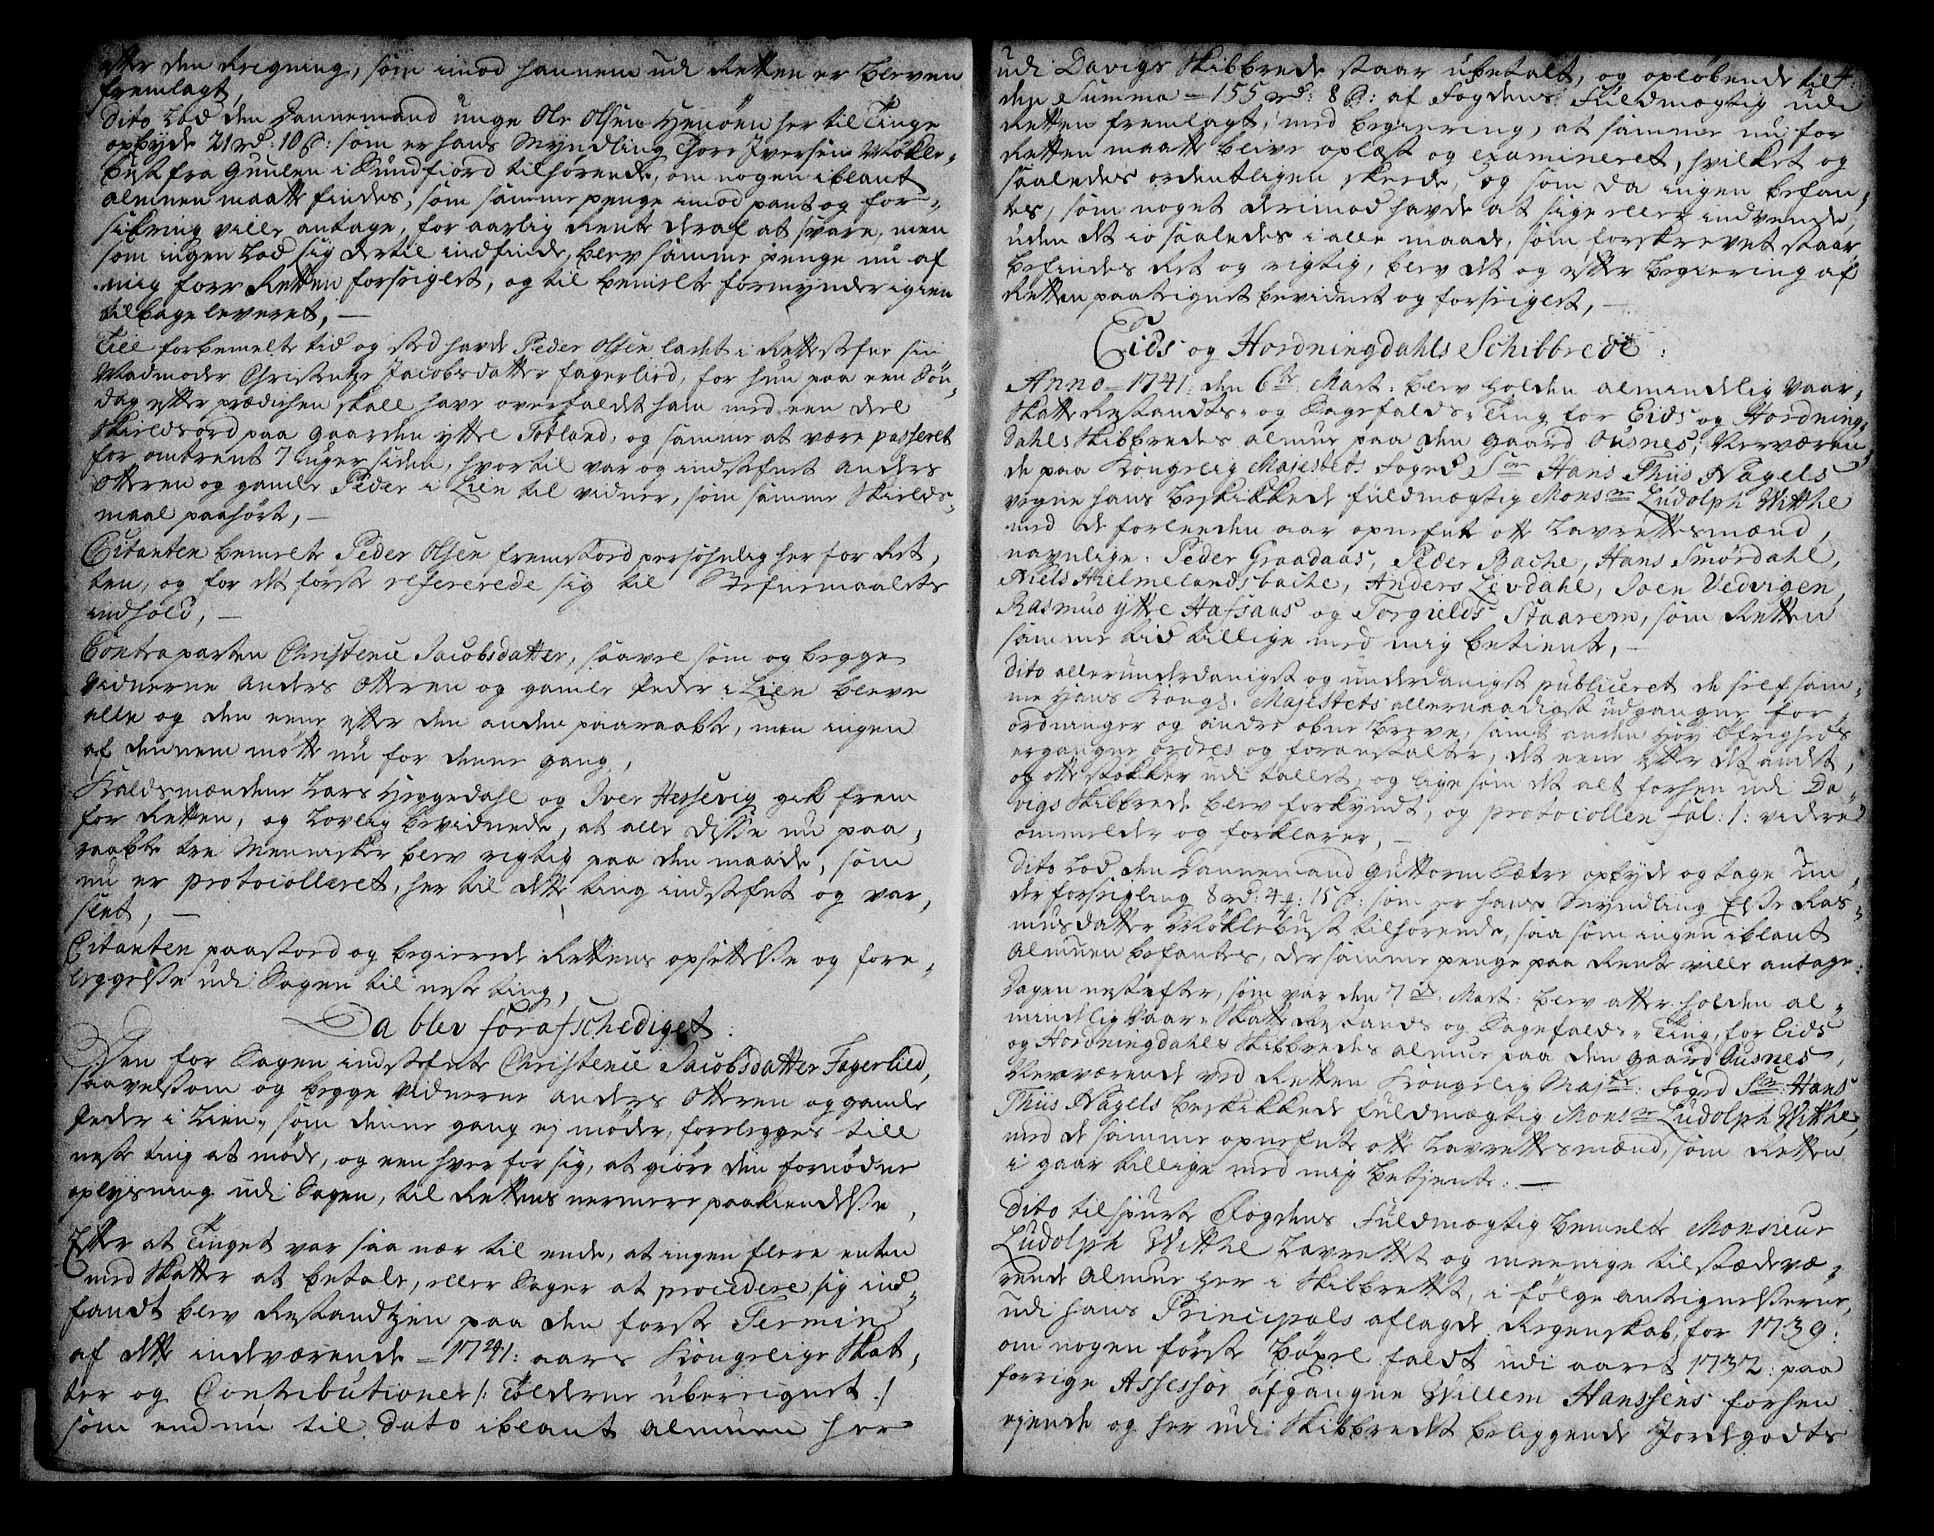 efter den Reigning, som imod hannem udi Retten er bleven
fremlagt,
Dito Lod den Dannemand unge Ole Olsen Henøen her til Tinge
opbyde 21 rd: 10 s: som er hans Myndling Thore Iversen Møkle-
bust fra Guulen i Sundfiord tilhørende, om nogen iblant
almuen maatte findes, som samme penge imod pant og for-
sikring ville antage, for aarlig Rente deraf at svare, men
som ingen Lod sig dertil indfinde, blev samme penge nu af
mig forr Retten forseiglet, og til bemelte formynder igien
tilbage leveret, —
Till forbemelte tid og sted havde Peder Olsen ladet i Rettestefne sin
Madmoder Christentze Jacobsdatter fagerliid, for hun paa een Søn-
dag efter prædichen skall have overfaldet ham med een deel
Skieldsord paa gaarden ytre Totland, og samme at være passeret
for omtrent 7 uger siden, hvortil var og indstefnet Anders
Otteren og gamle Peder i Lien til vidner, som samme Skields-
maal paahørte, —
Citanten bemelte Peder Olsen fremstoed persohnlig her for Ret,
ten, og for det første refererede sig til Stefnemaalets
indhold, —
Contraparten Christence Jacobsdatter, saavel som og begge
vidnerne Anders Otteren og gamle Peder i Lien bleve
alle og den eene efter den anden paaraabte, men ingen
af dennem mötte nu for denne gang,
Kaldsmændene Lars Hyggedahl og Iver Hessevig gik frem
for Retten, og Lovlig bevidnede, at alle disse nu paa,
raabte tre Mennisker blev rigtig paa den maade, som
nu er protocolleret, her til dette ting indstefnt og var,
slet, —
Citanten paastod og begierede Rettens opsettelse og fore-
leggelse udi Sagen til neste ting,
Da blev forafschediget:
Den for Sagen indstefnte Christence Jacobsdatter Fagerlied,
saavelsom og begge vidnerne anders Otteren og gamle
Peder i Lien, som denne gang ej møder, forelegges till
neste ting at møde, og een hver for sig, at giøre den fornødne
oplysning udi Sagen, til Rettens nermere paakiendelse,
Efter at Tinget var saa nær til ende, at ingen flere enten
med Skatter at betale, eller Sager at procedere sig ind-
fandt blev Restandtzen paa den første Termin
af dette indeværende — 1741: aars Kongelige Skat,
ter og Contributioner /: Tolderne uberegnet :/
som endnu til dato iblant almuen her
udi Davigs Skibbrede staar ubetalt, og opløbende til 4.
den Summa — 155 rd: 8 s: af Fogdens Fuldmægtig udi
Retten fremlagt, med begiering, at samme nu for
Retten maatte blive oplæst og examineret, hvilket og
saaledes ordentligen skeede, og som da ingen befan-
tes, som noget derimod havde at sige eller indvende,
uden det jo saaledes i alle maade, som forskrevet staar,
befindes Ret og rigtig, blev det og efter begiering af
Retten paategnet bevidnet og forseiglet, —
Eids og Hordningdahls Schibbrede:
Anno — 1741: den 6te Mart: blev holden almindelig Vaar-
Skatte Restandts- og Sagefalds- Ting for Eids og Hordning-
Dahls Skibbredes almue paa den gaard Ousnes; Nerværen-
de paa Kongelig Majestets Foged Sr. Hans Thiis Nagels
vegne hans beskikkede fuldmægtig Monsr. Ludolph Withe
med de forleeden aar opnefnte otte Laugrettesmænd,
navnlige: Peder Graadaas, Peder Bache, Hans Smørdahl,
Niels Hielmelandsbache, Anders Levdahl, Joen Vedvigen,
Rasmus ytre Hafsaas og Torgields Staarem, som Retten
samme tid tillige med mig betient, —
Dito allerunderdanigst og underdanigst publiceret de self sam-
me Hans Kongl. Majestets allernaadigst udgangne for-
ordninger og andre obne breve, samt anden høy øfrigheds
ergangne ordres og foranstalter, det eene efter det andet,
og otte støkker udi tallet, og lige som det alt forhen udi Da-
vigs Skibbrede blev forkyndt, og protocollen Fol: 1: videre
ommelder og forklarer, —
Dito Lod den Dannemand Guttorm Sætre opbyde og tage un-
der forseigling 8 rd: 4 : 15 s: som er hans Myndling Else Ras-
musdatter Møklebust tilhørende, saa som ingen iblant
Almuen befantes, der samme penge paa Rente ville antage:
Dagen nestefter, som var den 7de Mart: blev atter holden al-
mindelig Vaar- Skatte Restands og Sagefalds- Ting, for Eids
og Hordningdahls Skibbredes almue paa den gaard Ousnes,
Nerværende ved Retten Kongelig Majts: Foged Sr. Hans
Thiis Nagels beskikkede fuldmægtig Monsr Ludolph Withe,
med de samme opnefnte otte Laugrettesmænd, som Retten
i gaar tillige med mig betjente: —
Dito tilspurte Fogdens Fuldmægtig bemelte Monsieur
Ludolph Withe Laugrettet og meenige tilstædevæ-
rende Almue her i Skibbredet, i følge antegnelserne,
udi hans Principals aflagde Regenskab, for 1739:
om nogen første bøxel faldt udi aaret 1732: paa
forrige Assessor afgangne Willem Hanssens forhen
ejende og her udi Skibbredet beliggende Jordegodts